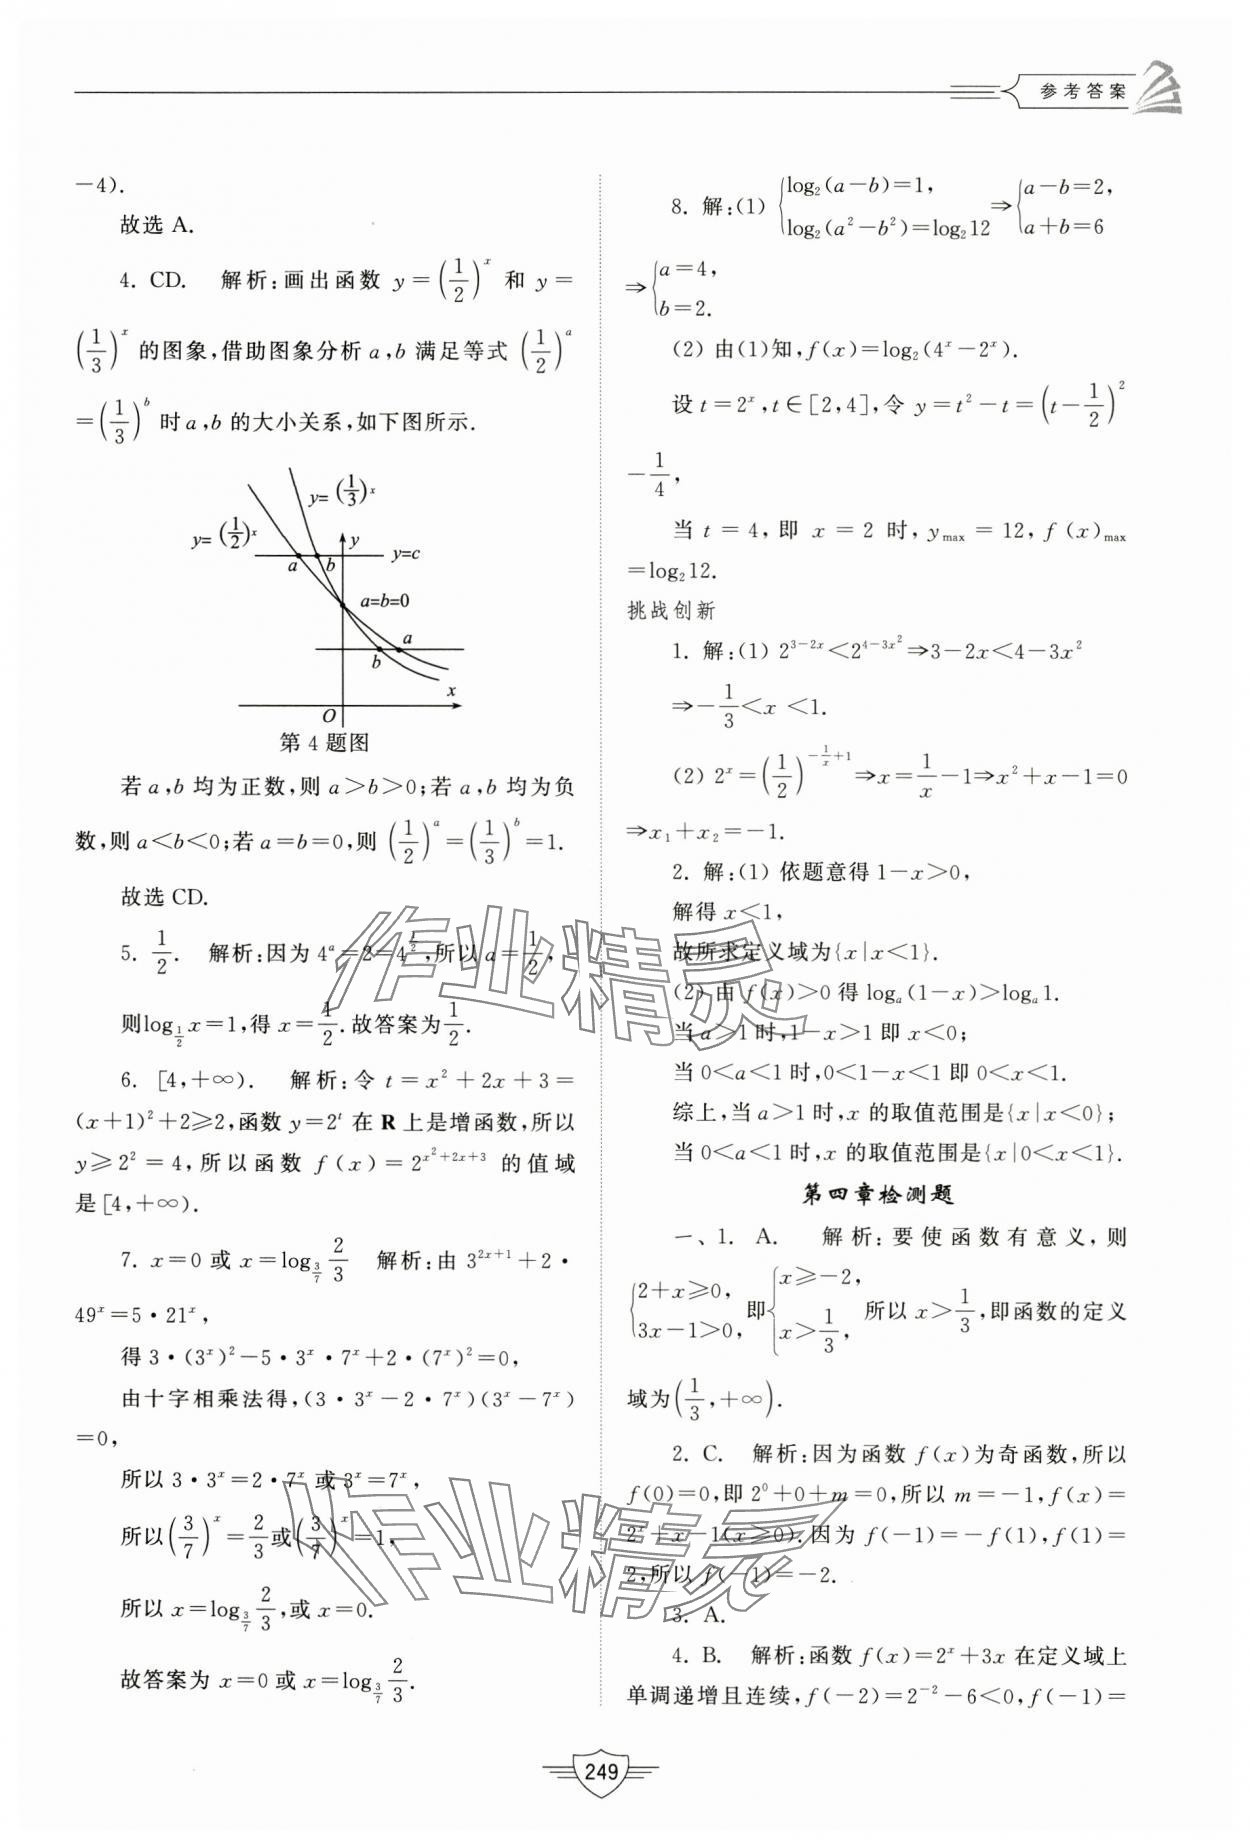 参考答案
－4).
故选 A.
4. CD.　解析:画出函数 y＝(1/2)^x 和 y＝
(1/3)^x 的图象,借助图象分析 a,b 满足等式 (1/2)^a
＝(1/3)^b 时 a,b 的大小关系,如下图所示.
y=(1/3)^x
y=(1/2)^x
y
y=c
a b
a=b=0
a
b
x
O
第 4 题图
若 a,b 均为正数,则 a＞b＞0;若 a,b 均为负
数,则 a＜b＜0;若 a＝b＝0,则 (1/2)^a＝(1/3)^b＝1.
故选 CD.
5. 1/2.　解析:因为 4^a＝2＝4^(1/2),所以 a＝1/2,
则log_(1/2) x＝1,得 x＝1/2.故答案为1/2.
6. [4,＋∞).　解析:令 t＝x²＋2x＋3＝
(x＋1)²＋2≥2,函数 y＝2^t 在 R 上是增函数,所以
y≥2²＝4,所以函数 f(x)＝2^(x²＋2x＋3) 的值域
是[4,＋∞).
7. x＝0 或 x＝log_(3/7) 2/3　解析:由 3^(2x＋1)＋2·
49^x＝5·21^x,
得 3·(3^x)²－5·3^x·7^x＋2·(7^x)²＝0,
由十字相乘法得,(3·3^x－2·7^x)(3^x－7^x)
＝0,
所以 3·3^x＝2·7^x 或 3^x＝7^x,
所以(3/7)^x＝2/3或(3/7)^x＝1,
所以 x＝log_(3/7) 2/3,或 x＝0.
故答案为 x＝0 或 x＝log_(3/7) 2/3.
8. 解:(1) {log₂(a－b)＝1, log₂(a²－b²)＝log₂12 ⇒ {a－b＝2, a＋b＝6
⇒{a＝4, b＝2.
(2) 由(1)知,f(x)＝log₂(4^x－2^x).
设 t＝2^x,t∈[2,4],令 y＝t²－t＝(t－1/2)²
－1/4,
当 t＝4,即 x＝2 时,y_max＝12,f(x)_max
＝log₂12.
挑战创新
1. 解:(1) 2^(3－2x)＜2^(4－3x²)⇒3－2x＜4－3x²
⇒－1/3＜x＜1.
(2) 2^x＝(1/2)^(－1/x＋1)⇒x＝1/x－1⇒x²＋x－1＝0
⇒x₁＋x₂＝－1.
2. 解:(1) 依题意得 1－x＞0,
解得 x＜1,
故所求定义域为{x|x＜1}.
(2) 由 f(x)＞0 得 log_a(1－x)＞log_a1.
当 a＞1 时,1－x＞1 即 x＜0;
当 0＜a＜1 时,0＜1－x＜1 即 0＜x＜1.
综上,当 a＞1 时,x 的取值范围是{x|x＜0};
当 0＜a＜1 时,x 的取值范围是{x|0＜x＜1}.
第四章检测题
一、1. A.　解析:要使函数有意义,则
{2＋x≥0, 3x－1＞0, 即{x≥－2, x＞1/3, 所以 x＞1/3,即函数的定义
域为(1/3,＋∞).
2. C.　解析:因为函数 f(x)为奇函数,所以
f(0)＝0,即 2⁰＋0＋m＝0,所以 m＝－1,f(x)＝
2^x＋x－1(x≥0).因为 f(－1)＝－f(1),f(1)＝
2,所以 f(－1)＝－2.
3. A.
4. B.　解析:函数 f(x)＝2^x＋3x 在定义域上
单调递增且连续,f(－2)＝2^(－2)－6＜0,f(－1)＝
249
作业精灵
作业精灵